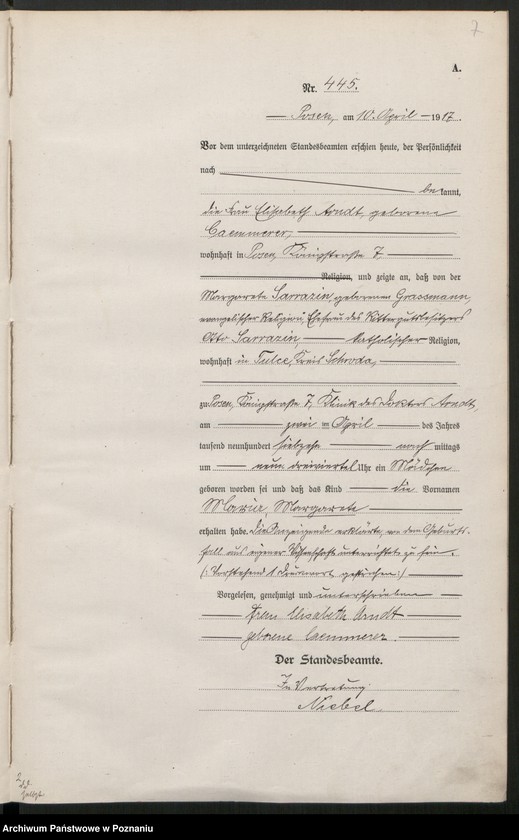 7
A.
Nr. 445.
Posen, am 10. April 1917.
Vor dem unterzeichneten Standesbeamten erschien heute, der Persönlichkeit
nach
bekannt,
die Frau Elisabeth Arndt, geborene
Caemmerer,
wohnhaft in Posen, Königstraße 7,
Religion, und zeigte an, daß von der
Margarete Sarrazin, geborenen Grassmann,
evangelischer Religion, Ehefrau des Rittergutsbesitzers
Otto Sarrazin, katholischer Religion,
wohnhaft in Tulce, Kreis Schroda,
zu Posen, Königstraße 7, Klinik des Doktors Arndt,
am zwei ten April des Jahres
tausend neunhundert siebzehn nach mittags
um neun dreiviertel Uhr ein Mädchen
geboren worden sei und daß das Kind die Vornamen
Maria, Margarete
erhalten habe. Die Anzeigende erklärte, von dem Geburts-
fall aus eigener Wissenschaft unterrichtet zu sein.
(: Vorstehend 1 Druckwort gestrichen :)
Vorgelesen, genehmigt und unterschrieben
Frau Elisabeth Arndt
geborene Caemmerer.
Der Standesbeamte.
In Vertretung
Niebel.
Archiwum Państwowe w Poznaniu